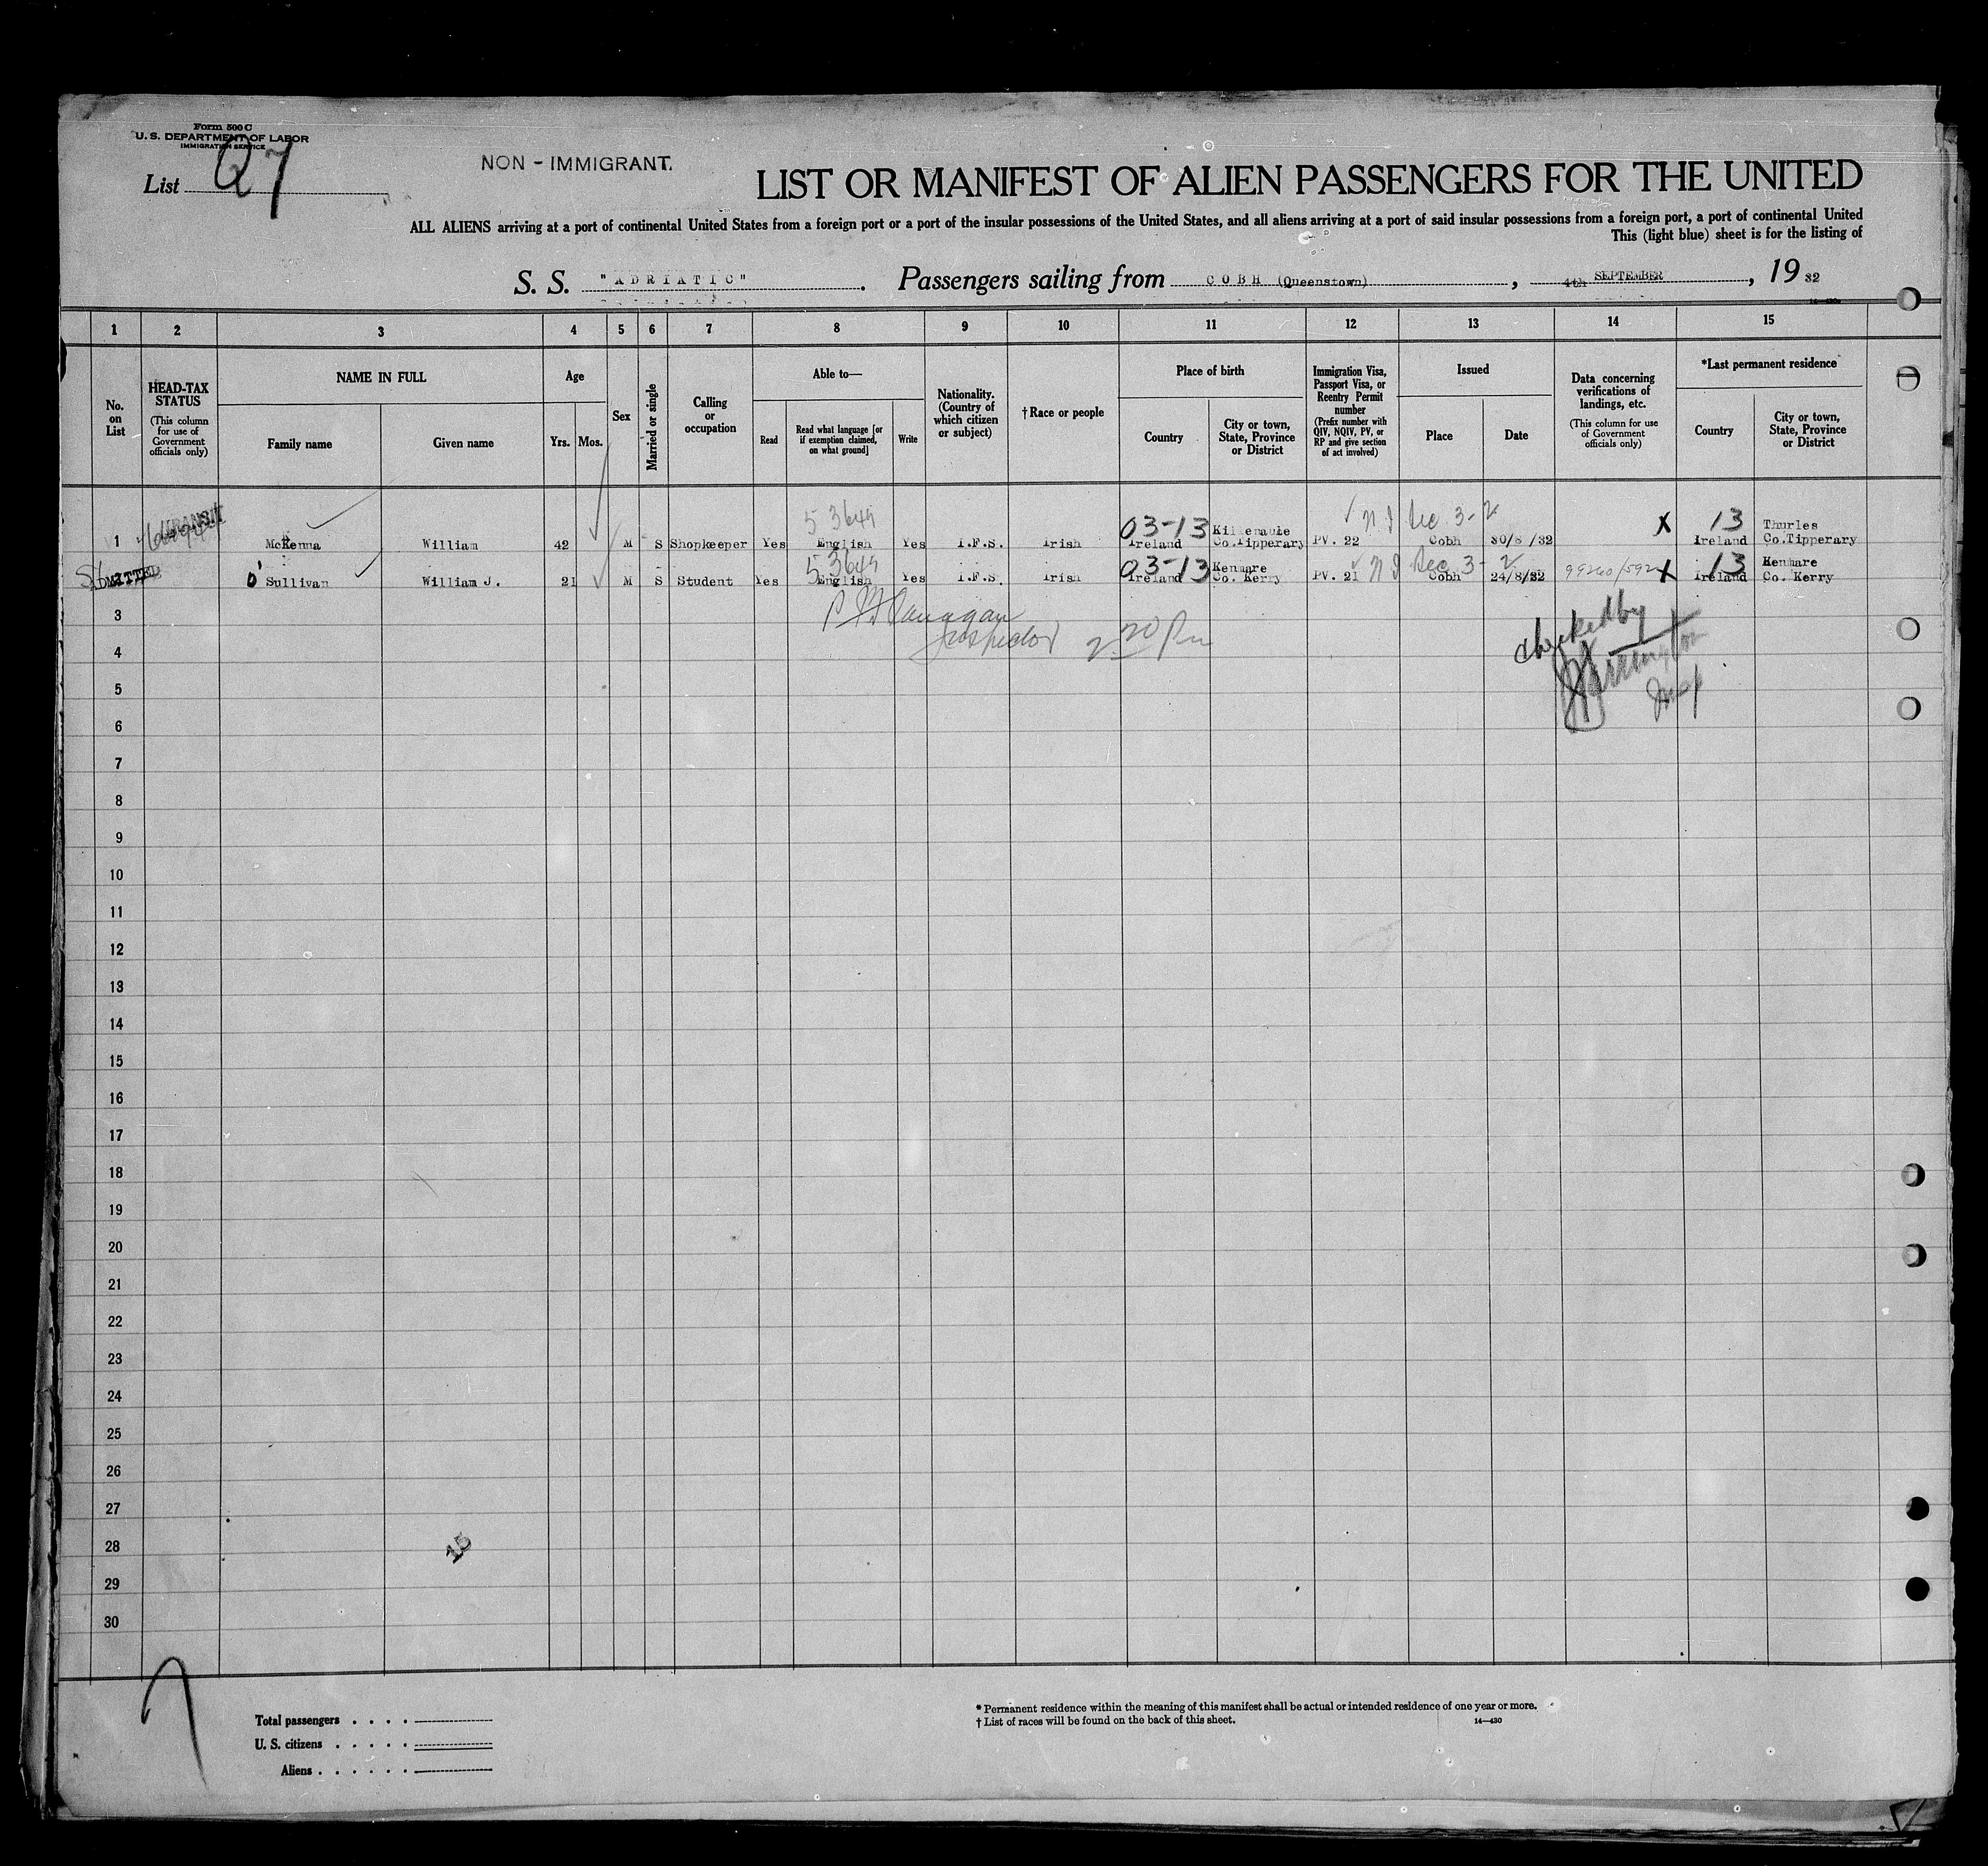 Form 500 C
U. S. DEPARTMENT OF LABOR
IMMIGRATION SERVICE
List 27
NON - IMMIGRANT.
LIST OR MANIFEST OF ALIEN PASSENGERS FOR THE UNITED
ALL ALIENS arriving at a port of continental United States from a foreign port or a port of the insular possessions of the United States, and all aliens arriving at a port of said insular possessions from a foreign port, a port of continental United
This (light blue) sheet is for the listing of
S. S. "ADRIATIC". Passengers sailing from COBH (Queenstown), 4th SEPTEMBER, 19 32
1 2 3 4 5 6 7 8 9 10 11 12 13 14 15
No. on List
HEAD-TAX STATUS (This column for use of Government officials only)
NAME IN FULL
Family name Given name
Age
Yrs. Mos.
Sex
Married or single
Calling or occupation
Able to—
Read
Read what language [or if exemption claimed, on what ground]
Write
Nationality. (Country of which citizen or subject)
†Race or people
Place of birth
Country
City or town, State, Province or District
Immigration Visa, Passport Visa, or Reentry Permit number (Prefix number with QIV, NQIV, PV, or RP and give section of act involved)
Issued
Place Date
Data concerning verifications of landings, etc. (This column for use of Government officials only)
*Last permanent residence
Country
City or town, State, Province or District
TRANSIT
5 3649 03-13 3-2 X 13
1 McKenna William 42 M S Shopkeeper Yes English Yes I.F.S. Irish Ireland Co.Tipperary PV. 22 Cobh 30/8/32 Ireland Thurles Co.Tipperary
5 3649 03-13 Sec 3-2 X 13
ADMITTED O'Sullivan William J. 21 M S Student Yes English Yes I.F.S. Irish Ireland Kenmare Co. Kerry PV. 21 Cobh 24/8/32 Ireland Kenmare Co. Kerry
3
Inspector 2 20 Pm
checked by
4
5
6
7
8
9
10
11
12
13
14
15
16
17
18
19
20
21
22
23
24
25
26
27
28
15
29
30
Total passengers
U. S. citizens
Aliens
* Permanent residence within the meaning of this manifest shall be actual or intended residence of one year or more.
† List of races will be found on the back of this sheet.
14—430